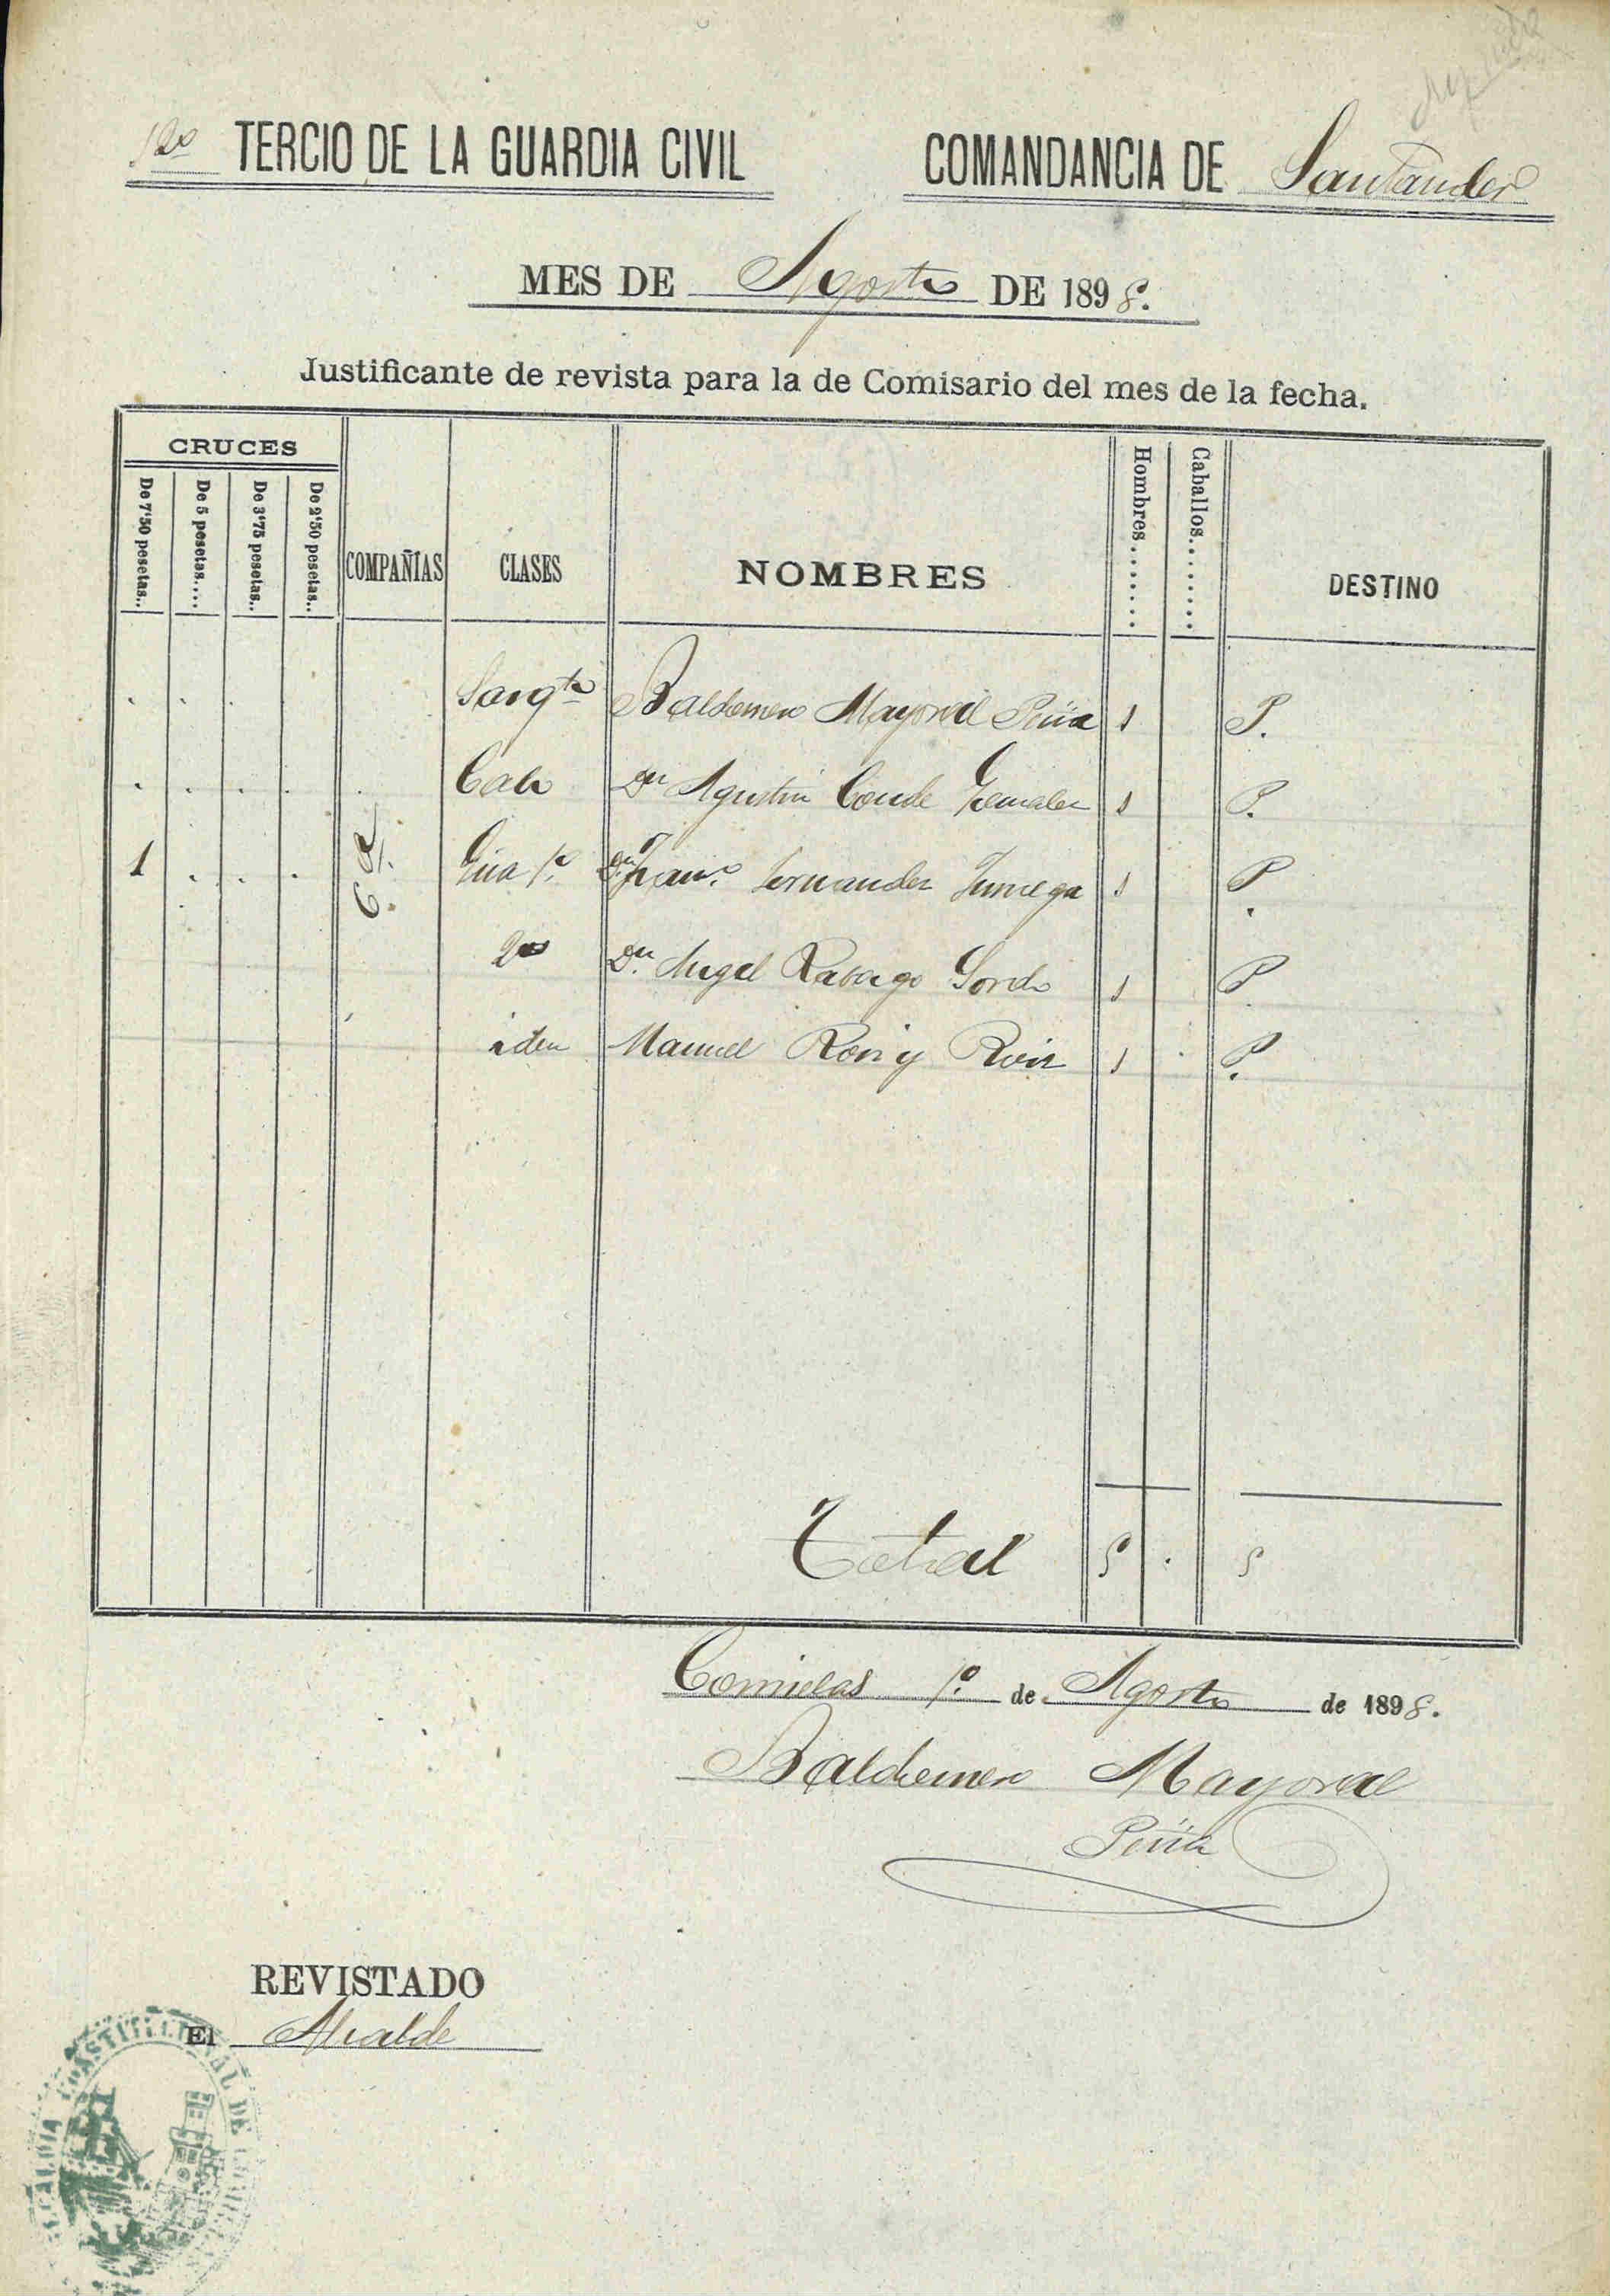 12º TERCIO DE LA GUARDIA CIVIL COMANDANCIA DE Santander
MES DE Agosto DE 1898.
Justificante de revista para la de Comisario del mes de la fecha.
CRUCES
De 7'50 pesetas..
De 5 pesetas....
De 3'75 pesetas..
De 2'50 pesetas..
COMPAÑIAS
CLASES
NOMBRES
Hombres.......
Caballos........
DESTINO
6ª
Sargto Baldomero Mayoral Peña 1 P.
Cabo Dn Agustin Conde 1 P.
1 Gua 1º Dn Franco Fernandez 1 P.
2º Dn Angel Rabago Gordo 1 P
idem Manuel Roiz y Ruiz 1 P.
Total 5 . 5
Comillas 1º de Agosto de 1898.
Baldomero Mayoral
Peña
REVISTADO
El Alcalde
ALCALDIA CONSTITUCIONAL DE